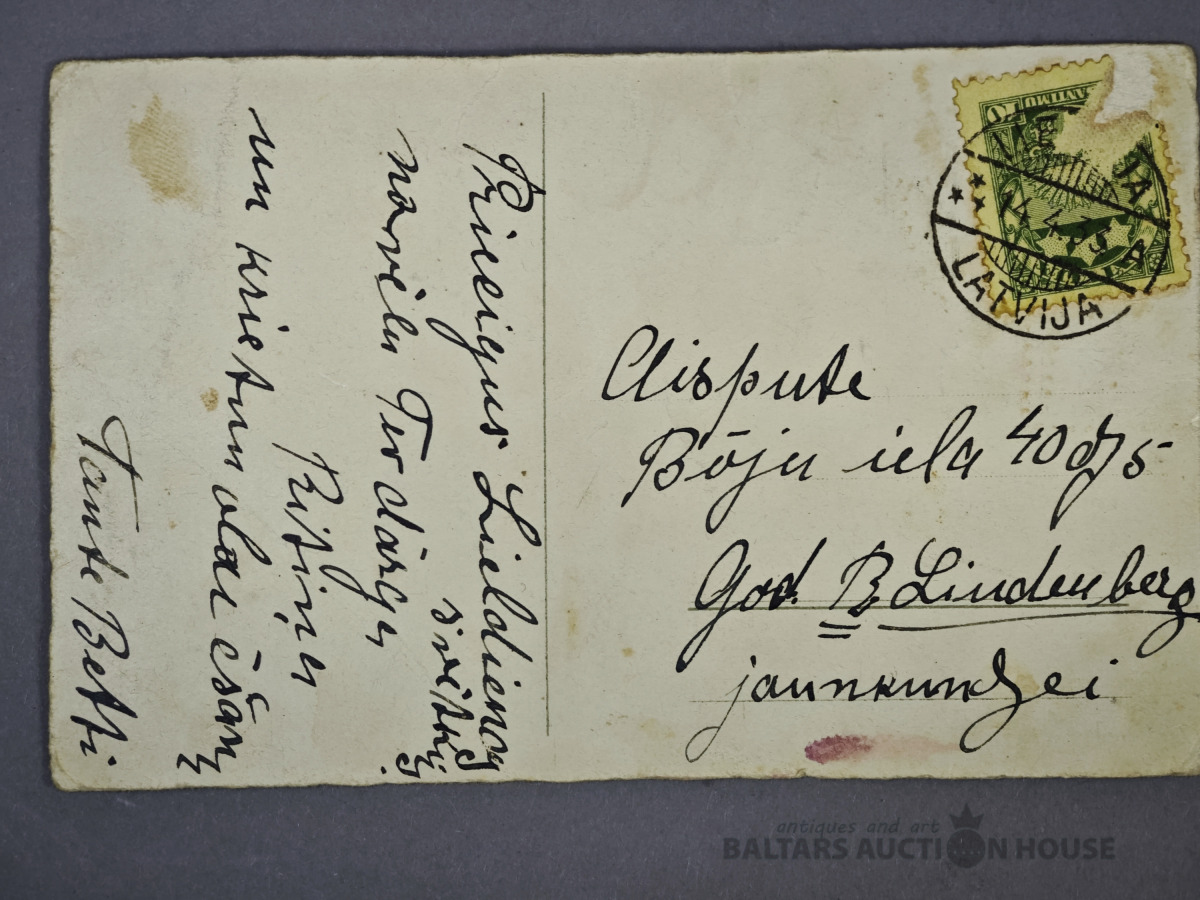 Priecigus Lieldienas
svētkų
novēlu Tev dārgu
Ritiņu
un krietnu olar ēšanų
Tante Betti
LATVIJA
14 4
Aispute
Bōju iela 40 dz 5
God. B. Lindenberg
jaunkundzei
antiques and art
BALTARS AUCTION HOUSE